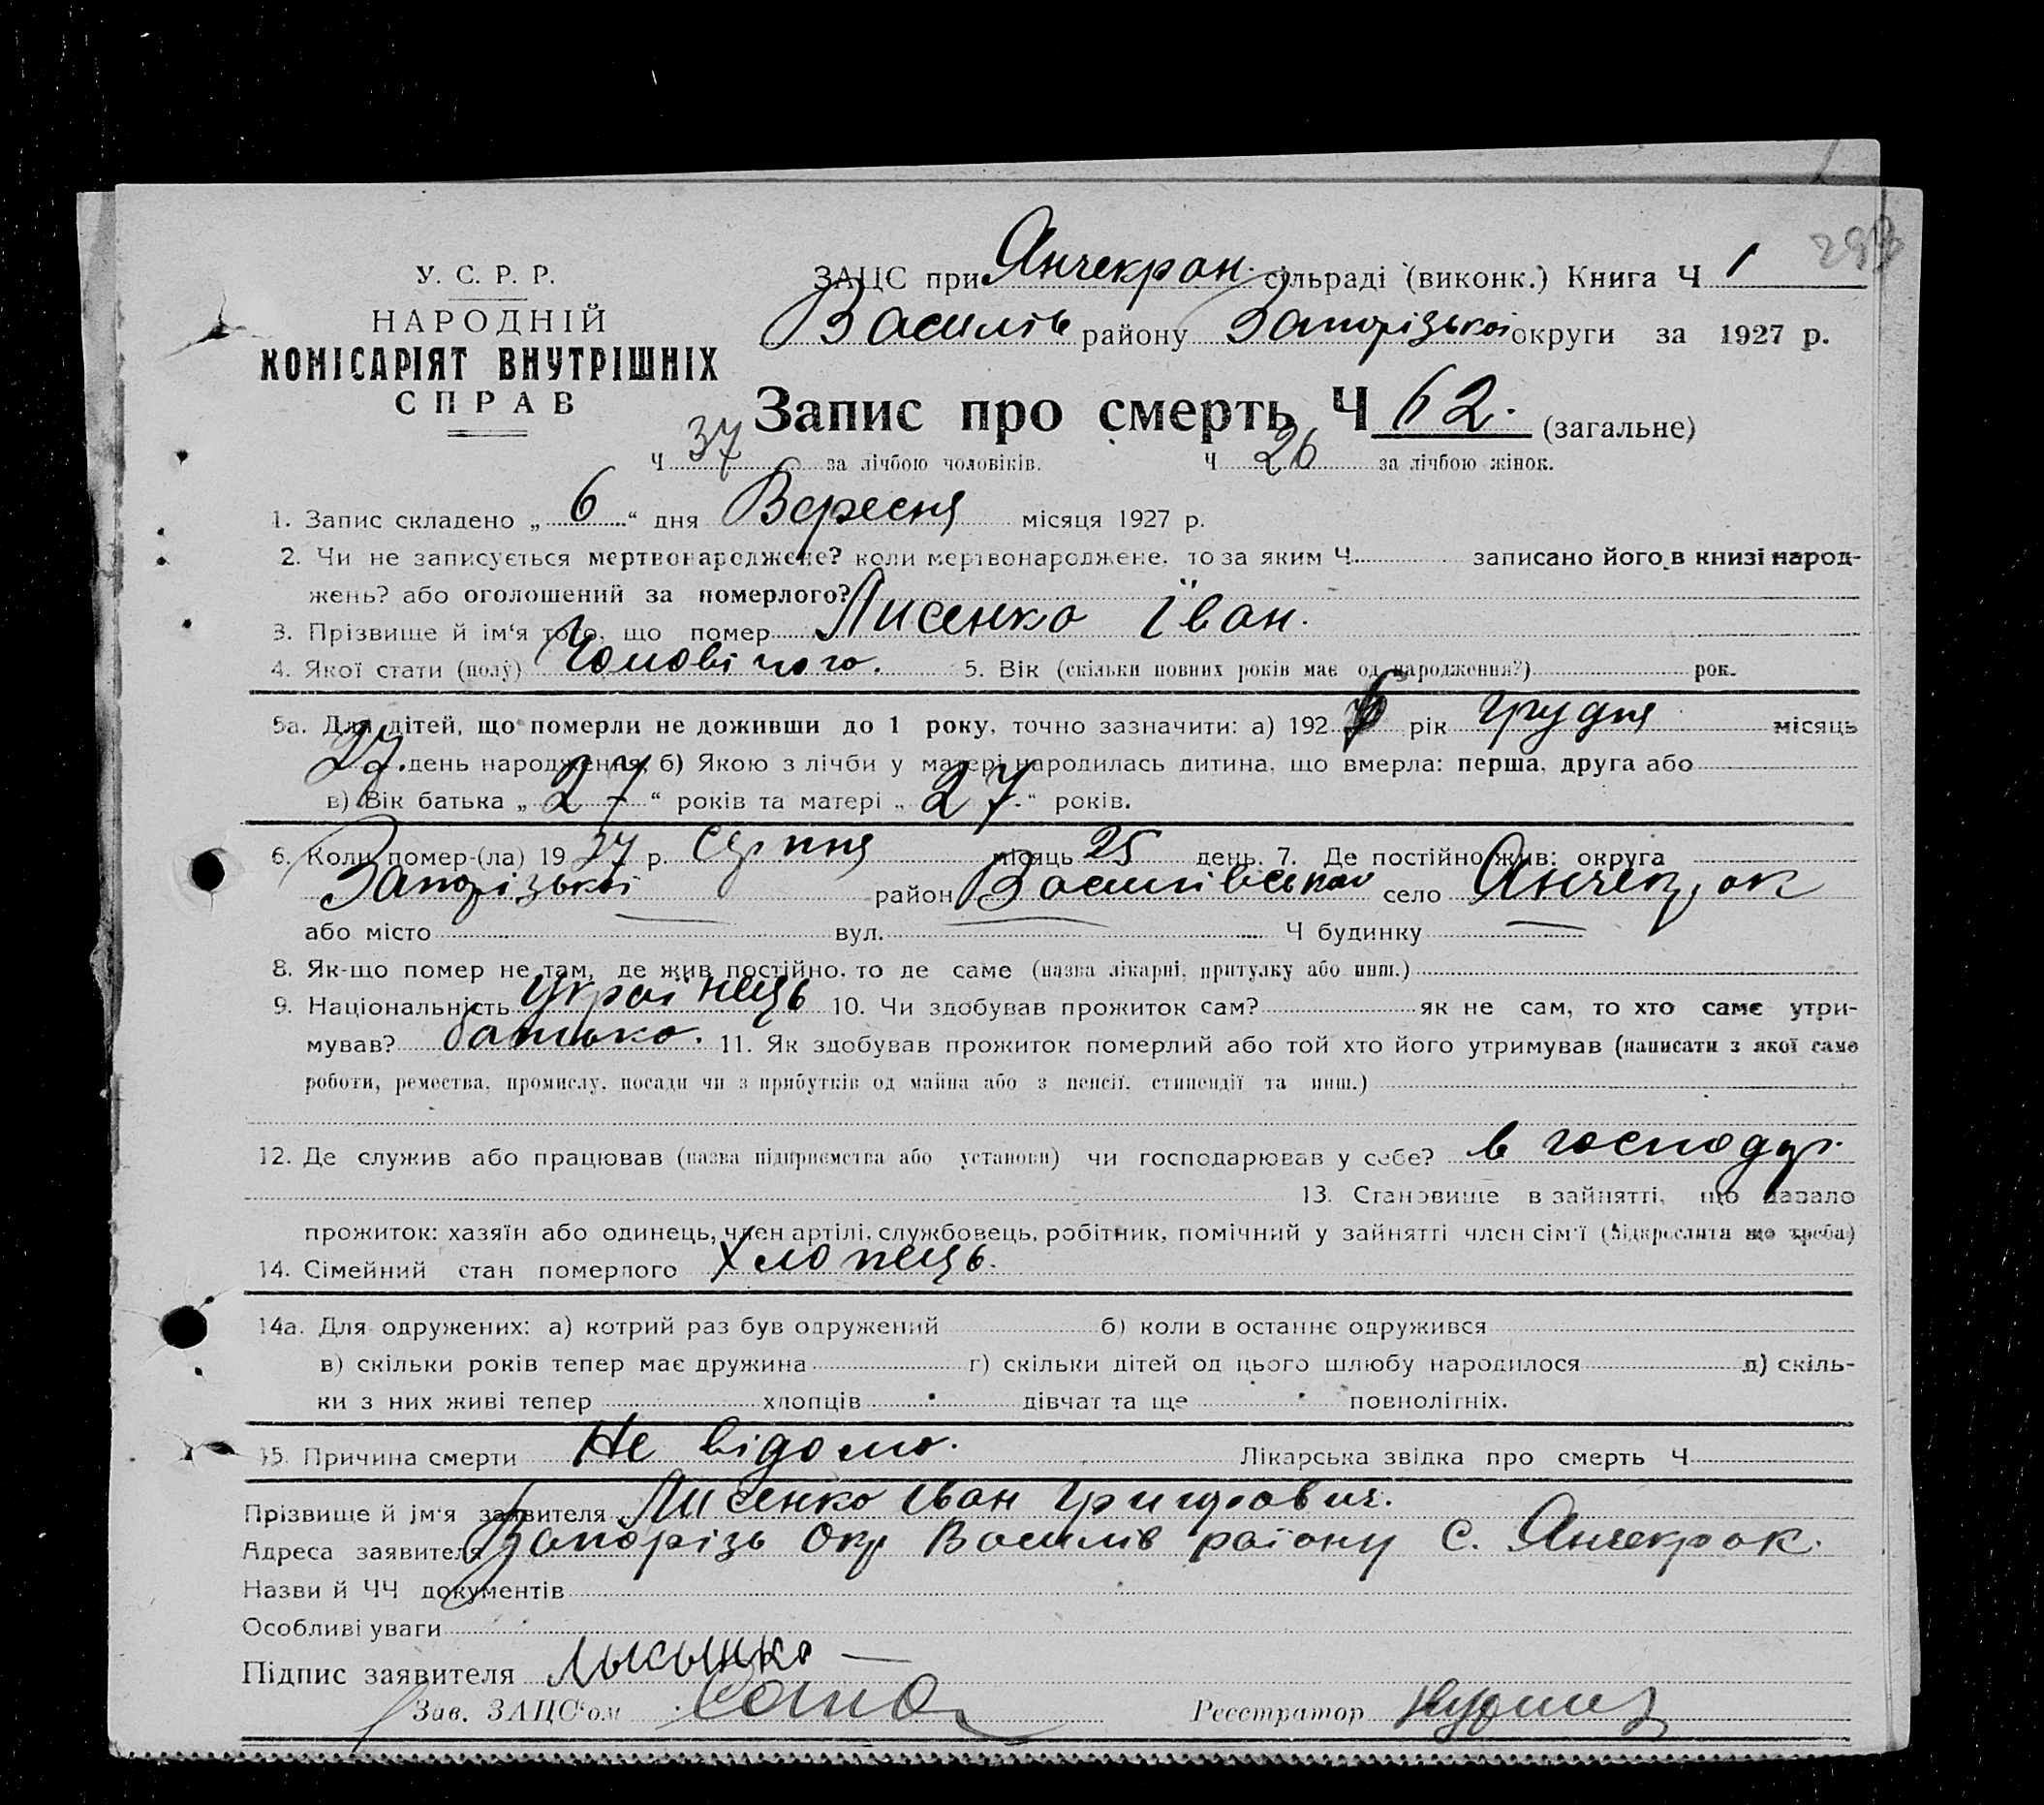 У. С. Р. Р.
НАРОДНІЙ
КОМІСАРІЯТ ВНУТРІШНІХ
СПРАВ
ЗАЦС при Янчекрак. сільраді (виконк.) Книга Ч 1
Василів району Запорізької округи за 1927 р.
Запис про смерть Ч 62. (загальне)
Ч 37 за лічбою чоловіків. Ч 26 за лічбою жінок.
1. Запис складено „ 6 “ дня Вересня місяця 1927 р.
2. Чи не записується мертвонароджене? коли мертвонароджене, то за яким Ч записано його в книзі народ-
жень? або оголошений за померлого?
3. Прізвище й ім‘я того, що помер Лисенко Іван.
4. Якої стати (полу) Чоловічого. 5. Вік (скільки повних років має од народження?) рок.
5а. Для дітей, що померли не доживши до 1 року, точно зазначити: а) 192 6 рік грудня місяць
27. день народження, б) Якою з лічби у матері народилась дитина, що вмерла: перша, друга або
в) Вік батька „ 27 “ років та матері „ 27 “ років.
6. Коли помер-(ла) 19 27 р. серпня місяць 25 день. 7. Де постійно жив: округа
Запорізької район Василівськ село Янчекрак
або місто вул. Ч будинку
8. Як-що помер не там, де жив постійно, то де саме (назва лікарні, притулку або инш.)
9. Національність українець 10. Чи здобував прожиток сам? як не сам, то хто саме утри-
мував? батько. 11. Як здобував прожиток померлий або той хто його утримував (написати з якої саме
роботи, ремества, промислу, посади чи з прибутків од майна або з пенсії, стипендії та инш.)
12. Де служив або працював (назва підприємства або установи) чи господарював у себе? в господрі
13. Становище в зайнятті, що давало
прожиток: хазяїн або одинець, член артілі, службовець, робітник, помічний у зайнятті член сім‘ї (підкреслити що треба)
14. Сімейний стан померлого Хлопець.
14а. Для одружених: а) котрий раз був одружений б) коли в останнє одружився
в) скільки років тепер має дружина г) скільки дітей од цього шлюбу народилося д) скіль-
ки з них живі тепер хлопців дівчат та ще повнолітніх.
15. Причина смерти Не відомо. Лікарська звідка про смерть Ч
Прізвище й ім‘я заявителя Лисенко Іван Григорович.
Адреса заявителя Запорізь Окр Василів району С. Янчекрак.
Назви й ЧЧ документів
Особливі уваги
Підпис заявителя Лысынко
Зав. ЗАЦС‘ом
Реєстратор